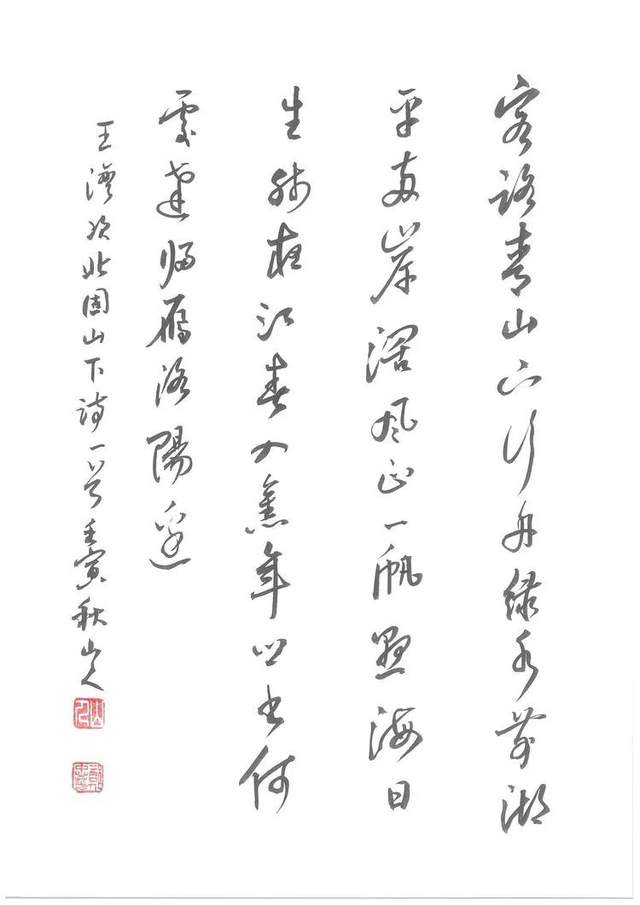 客路青山下行舟绿水前潮
平两岸阔风正一帆悬海日
生残夜江春入舊年乡书何
處達归雁洛陽邊
王灣次北固山下詩一首壬寅秋山人